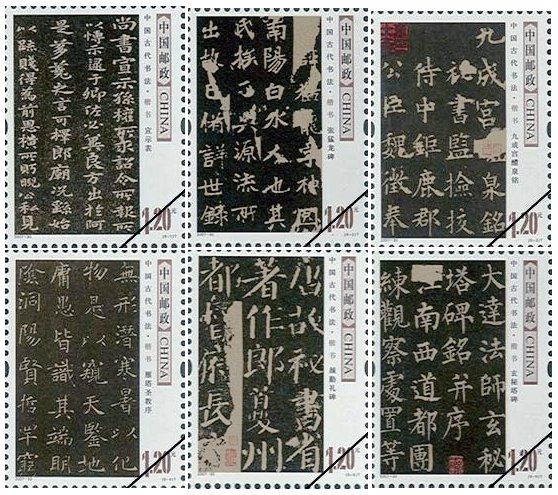 尚書宣示孫權所求詔令所報所
以博示逮于卿佐必冀良方出於阿
是芻蕘之言可擇郎廟況繇始
以疏賤得為前恩橫所眄睨公私見
中国邮政 CHINA
中国古代书法·楷书 宣示表
1.20元
2007-30
(6-1)T
龍字神冏
南陽白水人也其
氏族分興源流所
出故已備詳世錄
中国邮政 CHINA
中国古代书法·楷书 张猛龙碑
1.20元
2007-30
(6-2)T
九成宮泉銘
祕書監撿挍
侍中鉅鹿郡
公臣魏徵奉
中国邮政 CHINA
中国古代书法·楷书 九成宫醴泉铭
1.20元
2007-30
(6-3)T
無形潛寒暑以化
物是以窺天鑒地
庸愚皆識其端明
陰洞陽賢哲罕窮
中国邮政 CHINA
中国古代书法·楷书 雁塔圣教序
1.20元
2007-30
(6-4)T
唐故祕書省
著作郎夔州
都督府長
中国邮政 CHINA
中国古代书法·楷书 颜勤礼碑
1.20元
2007-30
(6-5)T
大達法師玄秘
塔碑銘并序
江南西道都團
練觀察處置等
中国邮政 CHINA
中国古代书法·楷书 玄秘塔碑
1.20元
2007-30
(6-6)T